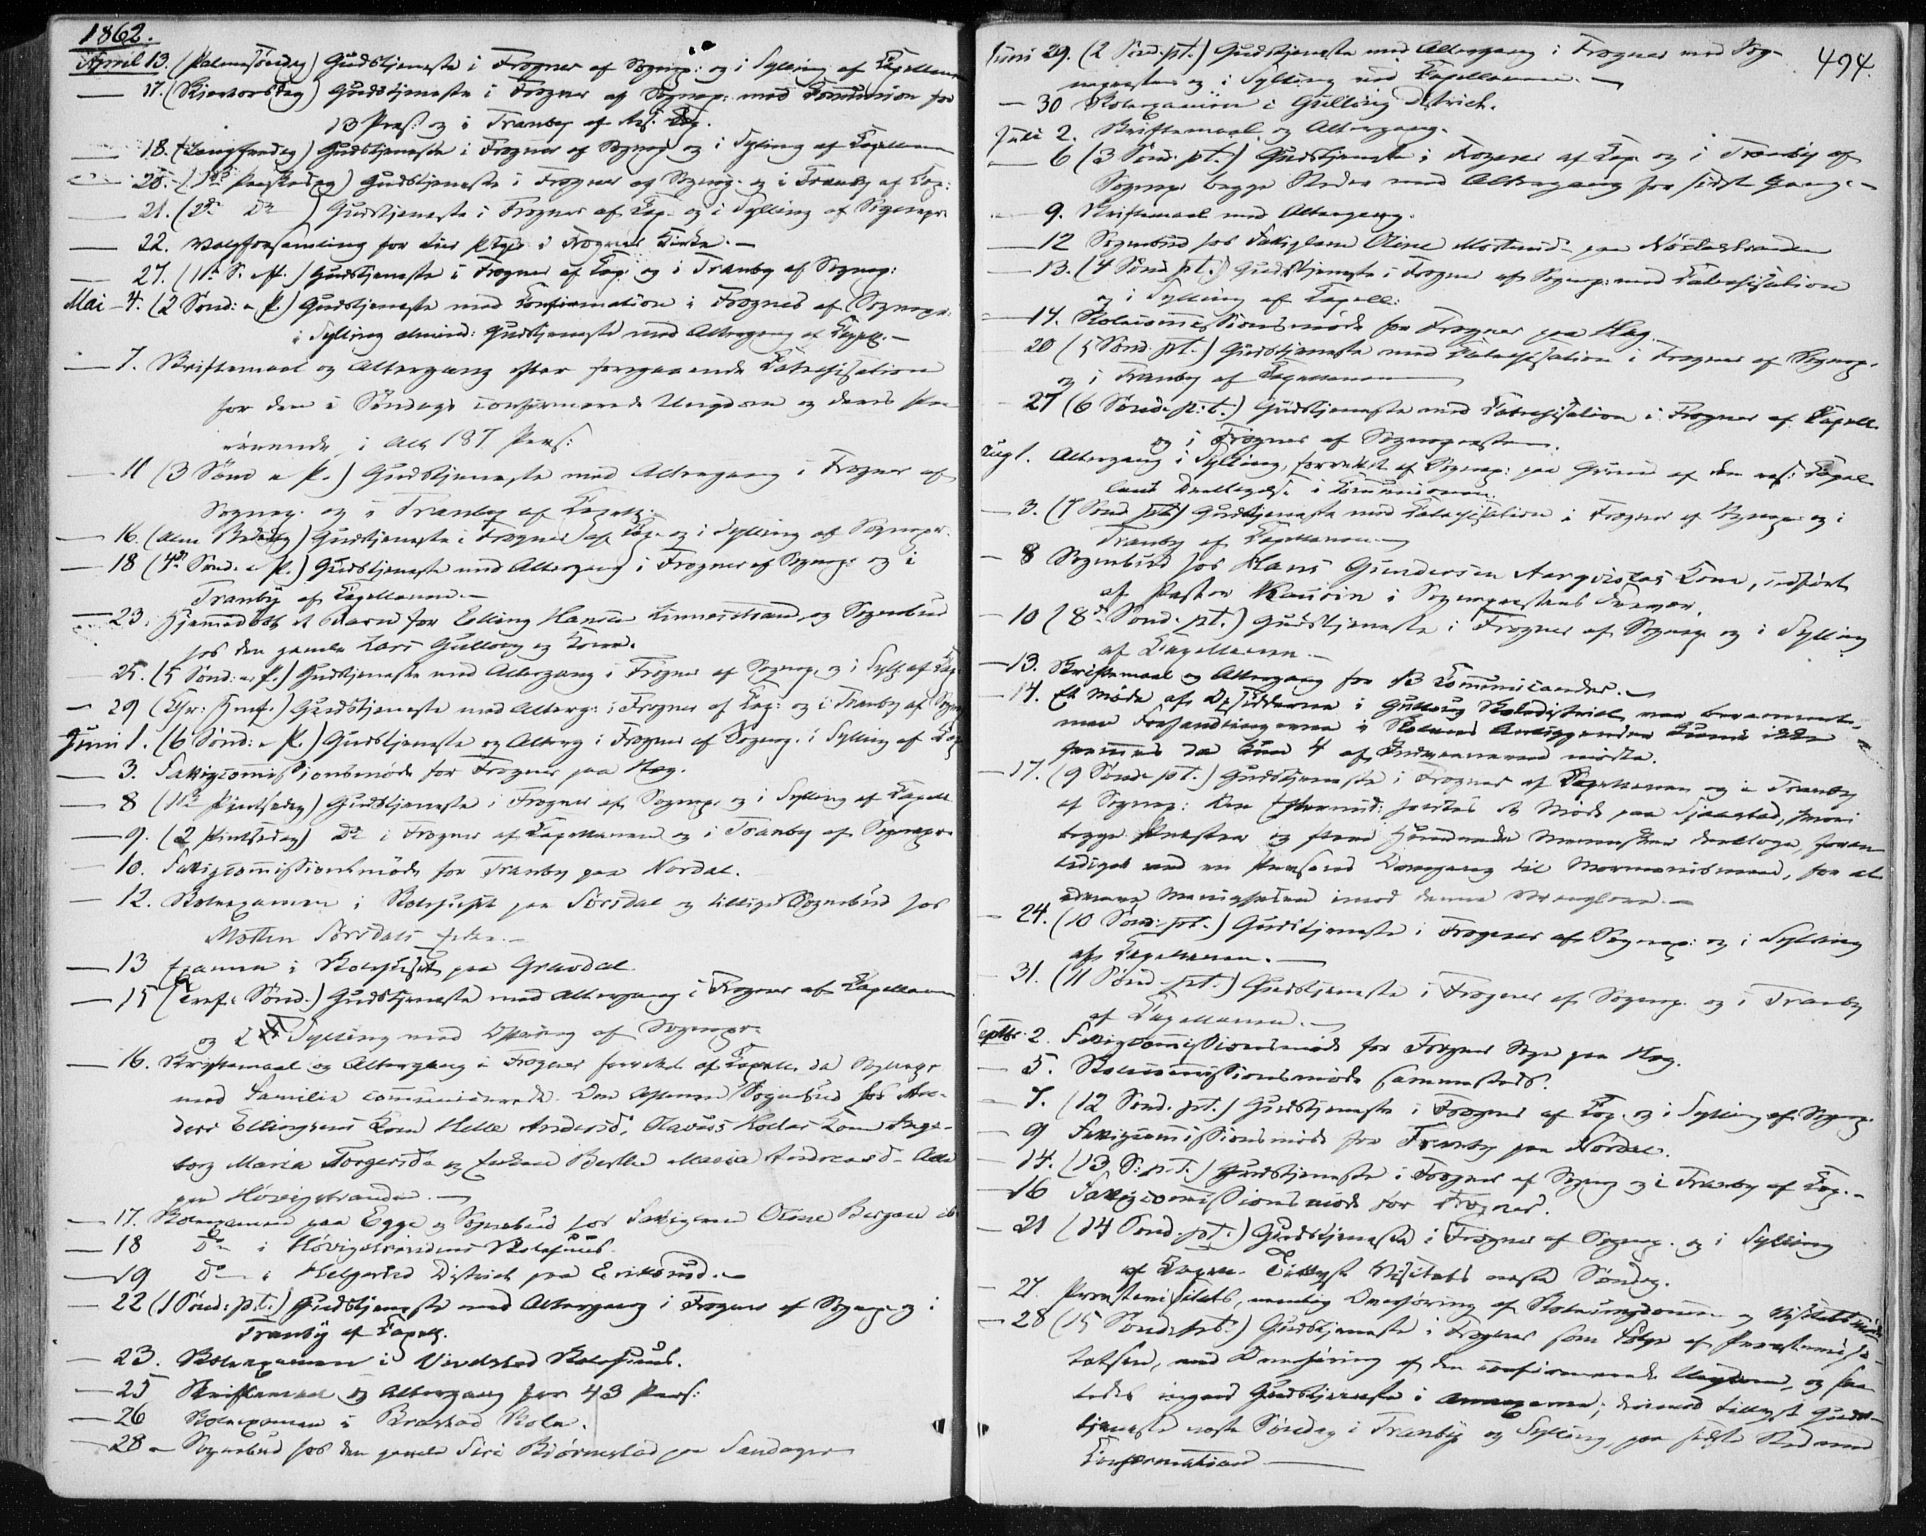 1862.
April 13. (Palmesöndag) Gudstjeneste i Frogner af Sognep: og i Sylling af Capellanen
— 17. (Skjertorsdag) Gudstjeneste i Frogner af Sognep: med Communion for
13 Pers: og i Tranby af
— 18. (Langfredag) Gudstjeneste i Frogner af Sognep og i Sylling af Capellanen
— 20. (1ste Paaskedag) Gudstjeneste i Frogner af Sognep. og i Tranby af Cap:
— 21. (2den Do) Gudstjeneste i Frogner af Cap. og i Sylling af Sognepr.
— 22. Valgforsamling for Lier Pgld i Frogner Kirke. —
— 27. (1ste S. e. P.) Gudstjeneste i Frogner af Cap. og i Tranby af Sognep:
Mai — 4. (2 Sönd: e. P.) Gudstjeneste med Confirmation i Frogner af Sognepr.
i Sylling almind: Gudstjeneste med Altergang af Capell. —
— 7. Skriftemaal og Altergang efter foregaaende Catechisation
for den i Söndags confirmerede Ungdom og deres
i Alt 187 Pers:
— 11 (3 Sönd e. P.) Gudstjeneste med Altergang i Frogner af
Sognep. og i Tranby af Capell.
— 16. (Alm Bededag) Gudstjeneste i Frogner af Cap. og i Sylling af Sognepr.
— 18 (4de Sönd. e. P.) Gudstjeneste med Altergang i Frogner af Sognep: og i
Tranby af Capellanen. —
— 23. Hjemmedöbt et Barn for Elling Hansen Linnesstrand og Sognebud
hos den gamle Lars Gullaug og Kone.
— 25. (5 Sönd: e. P.) Gudstjeneste med Altergang i Frogner af Sognep. og i Syll. af Cap.
— 29 (Chr: Hmf.) Gudstjeneste med Alterg: i Frogner af Cap: og i Tranby af Sognep
Juni 1. (6 Sönd: e. P.) Gudstjeneste og Alterg i Frogner af Sognep. i Sylling af Cap
— 3. Fattigcommissionsmöde for Frogner paa Hag.
— 8 (1ste Pintsedag) Gudstjeneste i Frogner af Sognepr og i Sylling af Capell
— 9. (2 Pintsedag) Do i Frogner af Capellanen og i Tranby af Sognepr.
— 10. Fattigcommissionsmöde for Tranby paa Nordal.
— 12. Skoleexamen i Skolehuset paa Sörsdal og tillige Sognebud hos
Morten Sörsdals
— 13 Examen i Skolehuset paa Gravdal
— 15 (Tref: Sönd.) Gudstjeneste med Altergang i Frogner af Capellanen
og i Sylling med Offring af Sognepr.
— 16. Skriftemaal og Altergang i Frogner forrettet af Capell. da Sognepr
med Familie communicerede. Om Aftenen Sognebud hos An-
ders Ellingsens Kone Helle Andersd, Olavus Kone Inge-
borg Maria Torgersd. og Enken Berthe Maria Andreasd. Alle
paa Hövigstranden. —
— 17. Skoleexamen paa Egge og Sognebud hos Fattiglem Oline Bergan
— 18 Do i Hövigstrandens Skolehuus.
— 19 Do — i Helgerud District paa Eriksrud. —
— 22 (1 Sönd: p. t.) Gudstjeneste med Altergang i Frogner af Sognep. og i
Tranby af Capell.
— 23. Skoleexamen i Vivelstad Skolehuus.
— 25 Skriftemaal og Altergang for 43 Pers:
— 26 Skoleexamen i Brastad Skole.
— 28 — Sognebud hos den gamle Siri Björnestad paa Sandager
494.
Juni 29. (2 Sönd: pt.) Gudstjeneste med Altergang i Frogner med Sog-
nepresten og i Sylling ved Capellanen. —
— 30 Skoleexamen i Gulloug District.
Juli 2. Skriftemaal og Altergang.
— 6 (3 Sönd. pt.) Gudstjeneste i Frogner af Cap. og i Tranby af
Sognepr begge Steder med Altergang for sidste Gang. —
— 9. Skriftemaal med Altergang.
— 12 Sognebud hos Fattiglem Oline Mortensd. paa Nöstestranden
— 13. (4 Sönd pt.) Gudstjeneste i Frogner af Sognep: med Catechisation
og i Sylling af Capell:
— 14. Skolecommissionsmöde for Frogner paa Hag.
20 (5 Sönd. pt.) Gudstjeneste med Catechisation i Frogner af Sognep.
og i Tranby af Capellanen
27 (6 Sönd. p. t.) Gudstjeneste med Catechisation i Frogner af Capell.
og i Frogner af Sognepresten.
Aug 1. Altergang i Sylling, forrettet af Sognep: paa Grund af den res: Capel-
lans Deeltagelse i Communionen.
— 3. (7 Sönd pt.) Gudstjeneste med Catechisation i Frogner af Sognepr og i
Tranby af Capellanen. —
— 8 Sognebud hos Hans Gundersen Kone, udfört
af Pastor Kaurin i Sognepræstens Fravær.
— 10 (8de Sönd. pt.) Gudstjeneste i Frogner af Sognep og i Sylling
af Capellanen. —
— 13. Skriftemaal og Altergang for 13 Communicanter. —
— 14. Et Möde af Opsidderne i Gulloug Skoledistrict, men
man Forhandlingerne i Skolens Anliggender kunde ikke
fremmes da kun 4 af mödte.
— 17. (9 Sönd. pt.) Gudstjeneste i Frogner af Capellanen og i Tranby
af Sognep: Om Eftermid: holdtes et Möde paa Sjaastad, hvori
begge Præster og flere Hundrede Mennesker deeltoge, foran-
lediget ved en Persons Overgang til Mormonismen, for at
advare Menigheden imod denne Vranglære. —
— 24. (10 Sönd: pt.) Gudstjeneste i Frogner af Sognep: og i Sylling
af Capellanen. —
— 31. (11 Sönd. pt.) Gudstjeneste i Frogner af Sognep. og i Tranby
af Capellanen. —
Septbr. 2. Fattigcommissionsmöde for Frogner Sogn paa Hag.
— 5. Skolecommissionsmöde sammesteds.
— 7. (12 Sönd. pt.) Gudstjeneste i Frogner af Cap. og i Sylling af Sognep.
— 9 Fattigcommissionsmöde for Tranby paa Nordal.
— 14. (13 S: p. T.) Gudstjeneste i Frogner af Sognep og i Tranby af Cap. —
— 16 Fattigcommissionsmöde for Frogner.
— 21 (14 Sönd: pt.) Gudstjeneste i Frogner af Sognep. og i Sylling
af Capell. Tillyst Visitats næste Söndag.
— 27. Provstevisitats, nemlig Overhöring af Skoleungdommen og
— 28 (15 Sönd. pt.) Gudstjeneste i Frogner som Fölge af Provstevisi-
tatsen, med Overhöring af den confirmerede Ungdom, og saa-
ledes ingen Gudstjeneste i Annexerne; derimod tillyst Guds-
tjeneste næste Söndag i Tranby og Sylling, paa sidste Sted med
Confirmation —